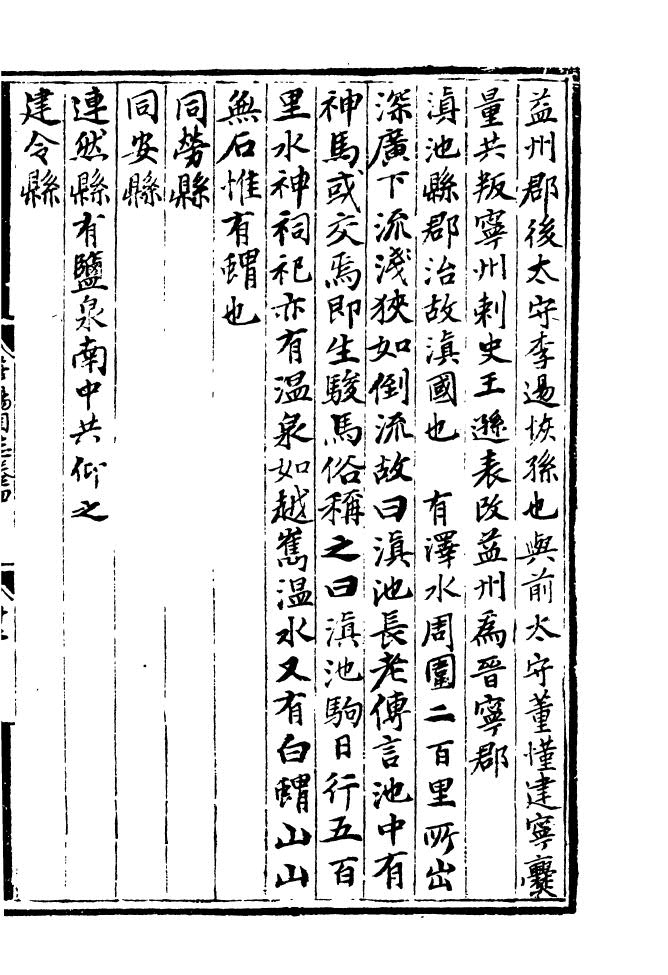 益州郡後太守李逷恢孫也與前太守董慬建寧爨
量共叛寧州刺史王遜表改益州爲晉寧郡
滇池縣郡治故滇國也　有澤水周圍二百里所出
深廣下流淺狹如倒流故曰滇池長老傳言池中有
神馬或交焉即生駿馬俗稱之曰滇池駒日行五百
里水神祠祀亦有温泉如越嶲温水又有白蝟山山
無石惟有蝟也
同勞縣
同安縣
連然縣有鹽泉南中共仰之
建令縣